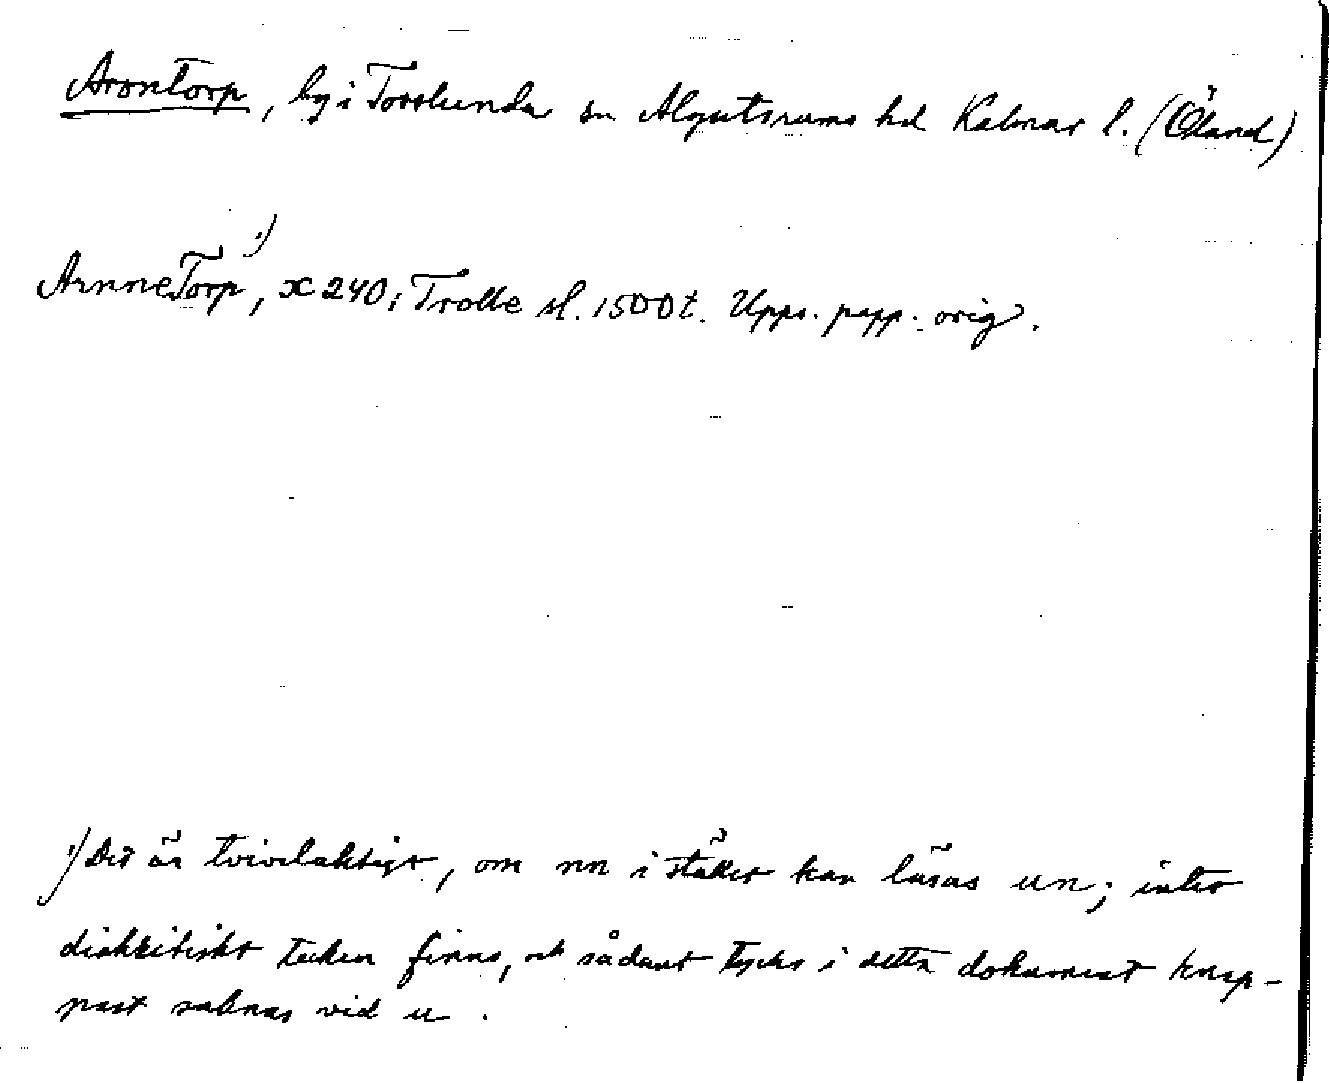 Arontorp, by i Torslunda sn Algutsrums hd Kalmar l. (Öland)
Arnnetorp¹⁾, x 240, Trolle sl. 1500 t. Upps. papp. orig.
¹⁾ Det är tvivelaktigt, om nn i stället kan läsas un; intet
diakritiskt tecken finns, och sådant tycks i detta dokument knap-
past saknas vid u.